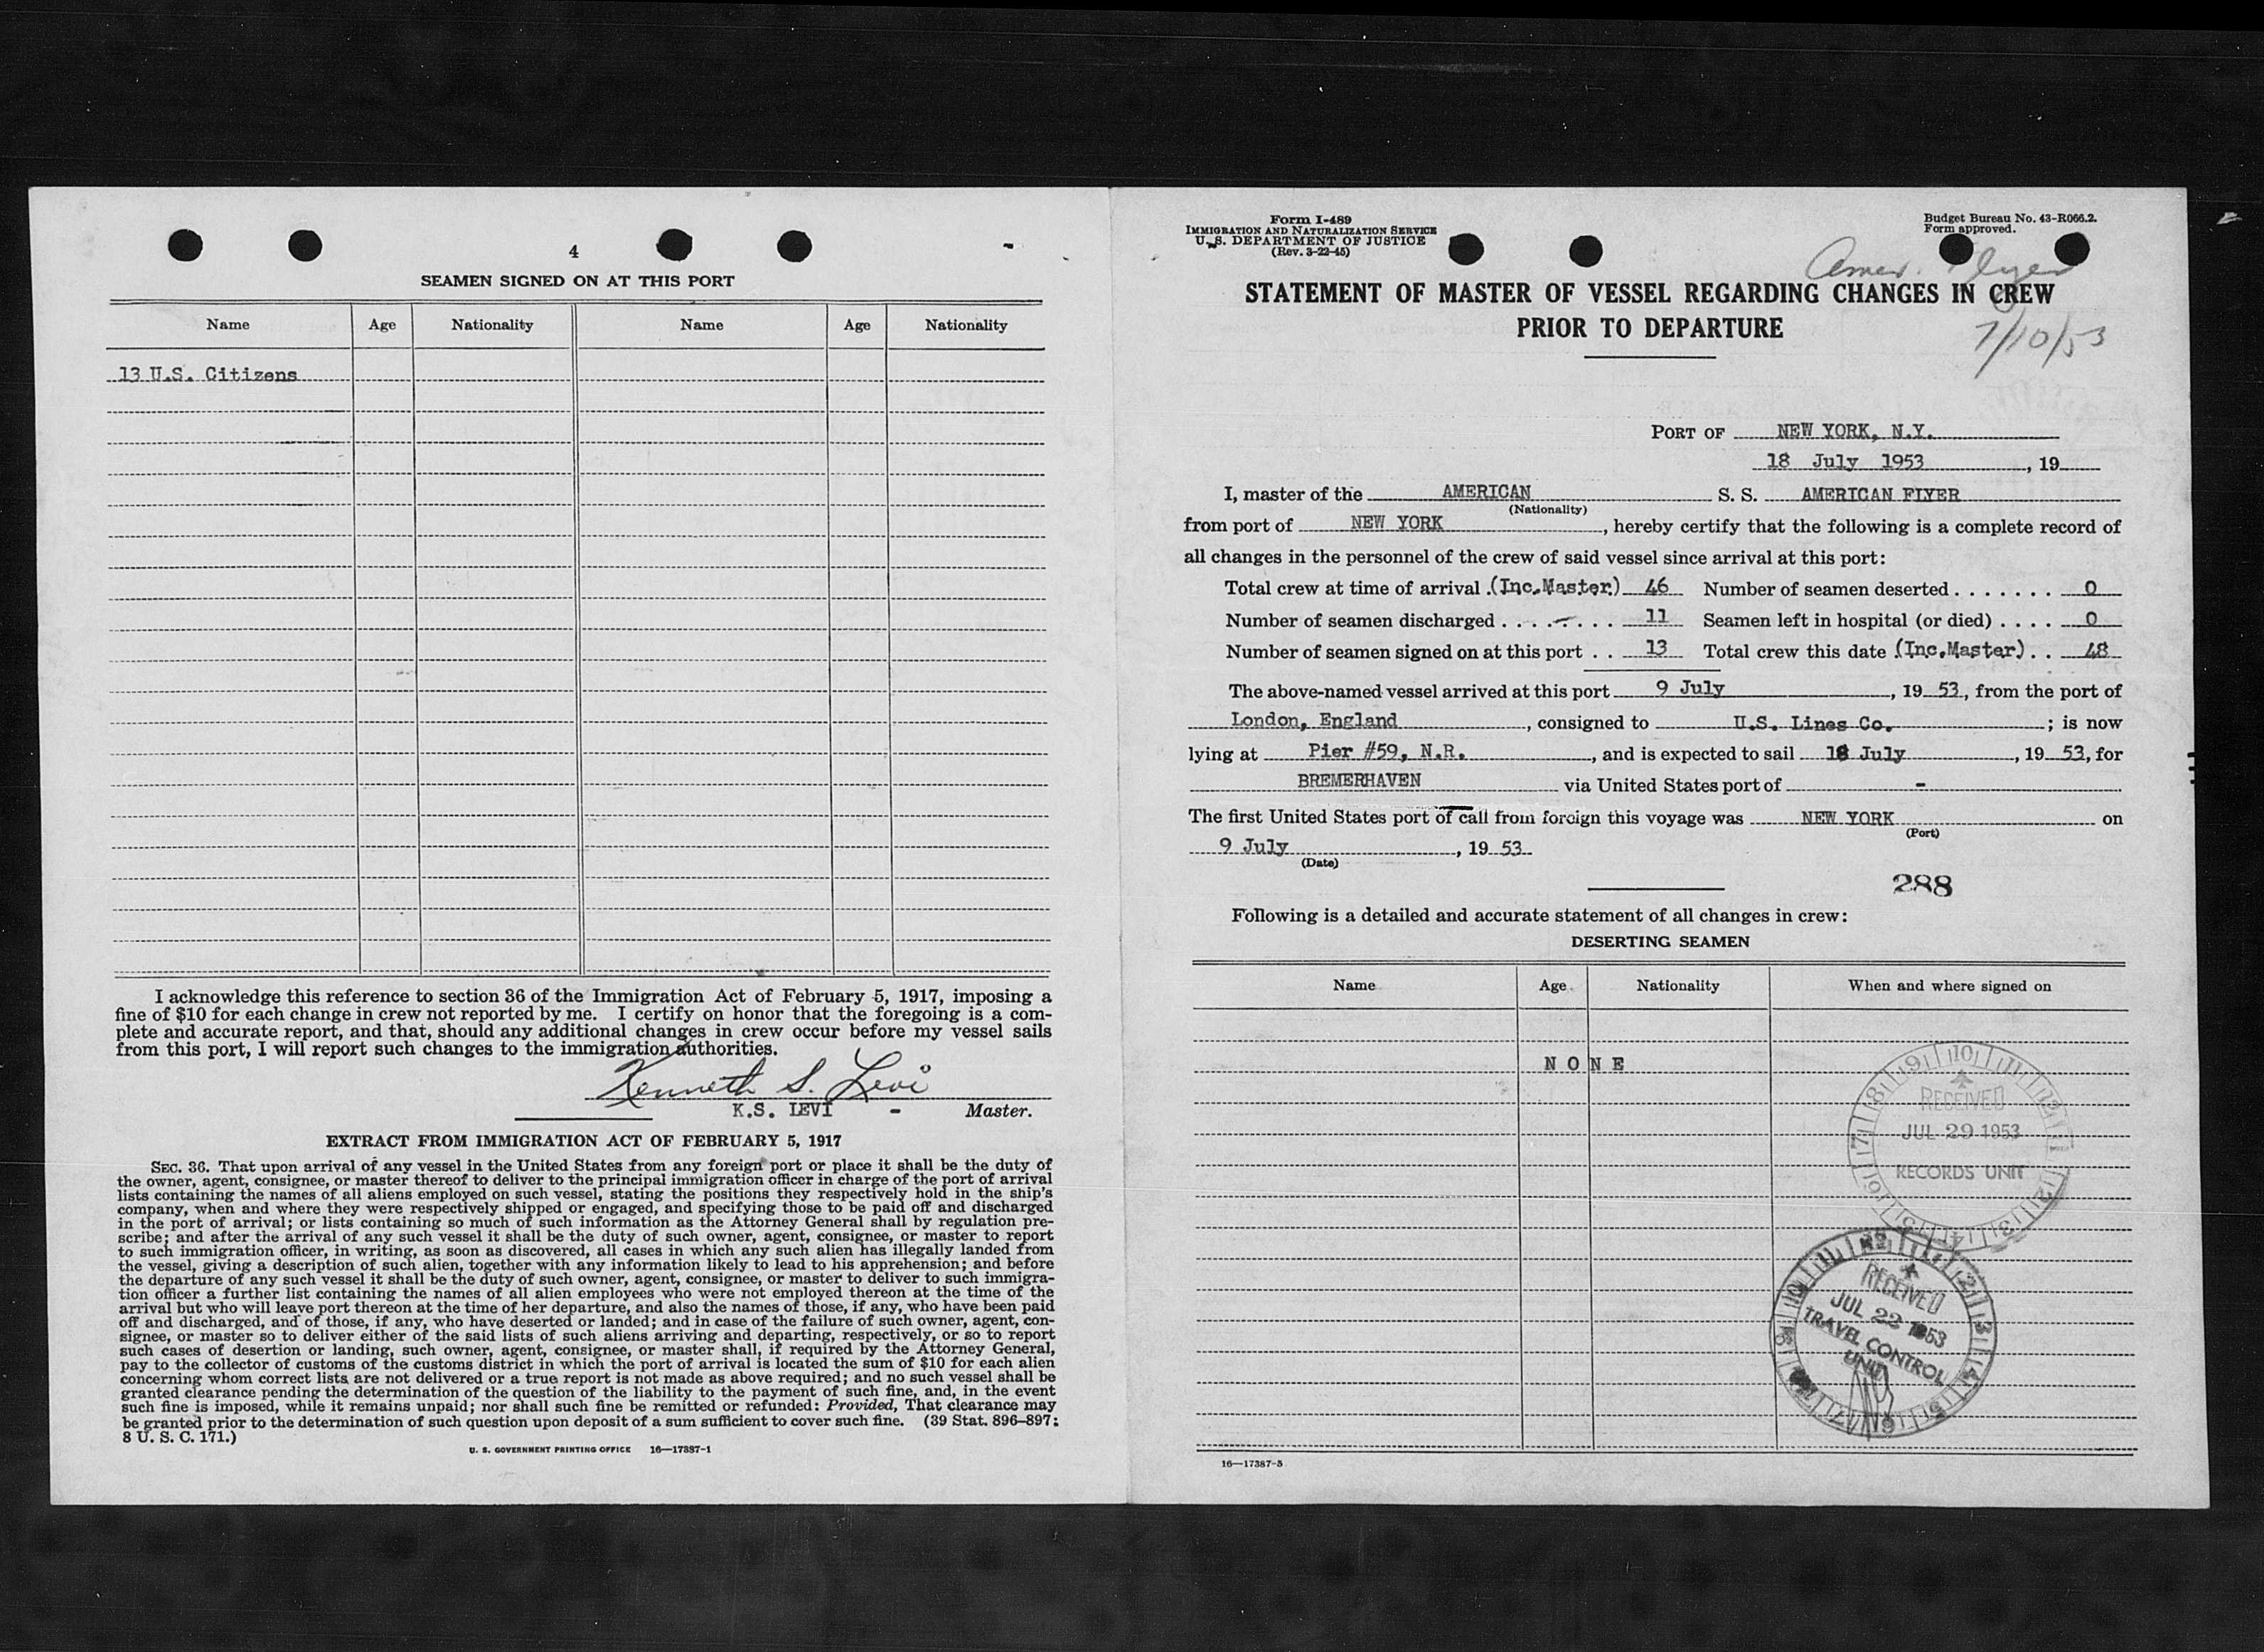 4
SEAMEN SIGNED ON AT THIS PORT
Name Age Nationality Name Age Nationality
13 U.S. Citizens
I acknowledge this reference to section 36 of the Immigration Act of February 5, 1917, imposing a
fine of $10 for each change in crew not reported by me. I certify on honor that the foregoing is a com-
plete and accurate report, and that, should any additional changes in crew occur before my vessel sails
from this port, I will report such changes to the immigration authorities.
Kenneth S. Levi
K.S. LEVI - Master.
EXTRACT FROM IMMIGRATION ACT OF FEBRUARY 5, 1917
SEC. 36. That upon arrival of any vessel in the United States from any foreign port or place it shall be the duty of
the owner, agent, consignee, or master thereof to deliver to the principal immigration officer in charge of the port of arrival
lists containing the names of all aliens employed on such vessel, stating the positions they respectively hold in the ship's
company, when and where they were respectively shipped or engaged, and specifying those to be paid off and discharged
in the port of arrival; or lists containing so much of such information as the Attorney General shall by regulation pre-
scribe; and after the arrival of any such vessel it shall be the duty of such owner, agent, consignee, or master to report
to such immigration officer, in writing, as soon as discovered, all cases in which any such alien has illegally landed from
the vessel, giving a description of such alien, together with any information likely to lead to his apprehension; and before
the departure of any such vessel it shall be the duty of such owner, agent, consignee, or master to deliver to such immigra-
tion officer a further list containing the names of all alien employees who were not employed thereon at the time of the
arrival but who will leave port thereon at the time of her departure, and also the names of those, if any, who have been paid
off and discharged, and of those, if any, who have deserted or landed; and in case of the failure of such owner, agent, con-
signee, or master so to deliver either of the said lists of such aliens arriving and departing, respectively, or so to report
such cases of desertion or landing, such owner, agent, consignee, or master shall, if required by the Attorney General,
pay to the collector of customs of the customs district in which the port of arrival is located the sum of $10 for each alien
concerning whom correct lists are not delivered or a true report is not made as above required; and no such vessel shall be
granted clearance pending the determination of the question of the liability to the payment of such fine, and, in the event
such fine is imposed, while it remains unpaid; nor shall such fine be remitted or refunded: Provided, That clearance may
be granted prior to the determination of such question upon deposit of a sum sufficient to cover such fine. (39 Stat. 896–897;
8 U. S. C. 171.)
U. S. GOVERNMENT PRINTING OFFICE 16—17387-1
Form I-489
IMMIGRATION AND NATURALIZATION SERVICE
U. S. DEPARTMENT OF JUSTICE
(Rev. 3-22-45)
Budget Bureau No. 43-R066.2.
Form approved.
Amer. Flyer
STATEMENT OF MASTER OF VESSEL REGARDING CHANGES IN CREW
PRIOR TO DEPARTURE
7/10/53
PORT OF NEW YORK, N.Y.
18 July 1953, 19
I, master of the AMERICAN S. S. AMERICAN FLYER
(Nationality)
from port of NEW YORK, hereby certify that the following is a complete record of
all changes in the personnel of the crew of said vessel since arrival at this port:
Total crew at time of arrival (Inc.Master) 46 Number of seamen deserted . . . . . . . 0
Number of seamen discharged . . . . . . . 11 Seamen left in hospital (or died) . . . . 0
Number of seamen signed on at this port . . 13 Total crew this date (Inc.Master) . . 48
The above-named vessel arrived at this port 9 July, 19 53, from the port of
London, England, consigned to U.S. Lines Co.; is now
lying at Pier #59, N.R., and is expected to sail 18 July, 19 53, for
BREMERHAVEN via United States port of -
The first United States port of call from foreign this voyage was NEW YORK on
(Port)
9 July, 19 53
(Date)
288
Following is a detailed and accurate statement of all changes in crew:
DESERTING SEAMEN
Name Age Nationality When and where signed on
NONE
RECEIVED
JUL 29 1953
RECORDS UNIT
RECEIVED
JUL 22 1953
TRAVEL CONTROL
UNIT
16—17387-3